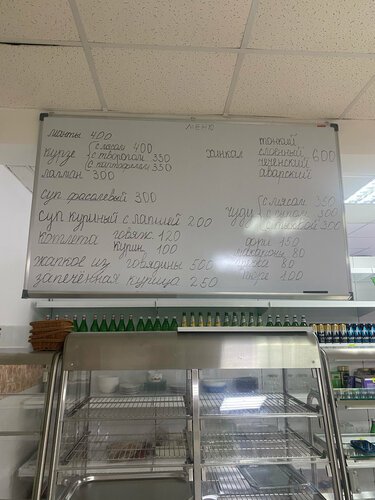 МЕНЮ
манты 400
курзе с мясом 400
с творогом 350
с картофелем 350
лагман 300
суп фасолевый 300
суп куриный с лапшей 200
котлета говяж 120
курин 100
жаркое из говядины 500
запечённая курица 250
хинкал тонкий
слоёный
чеченский
аварский
600
чуду с мясом 350
300
с тыквой 300
фри 150
макароны 80
80
пюре 100